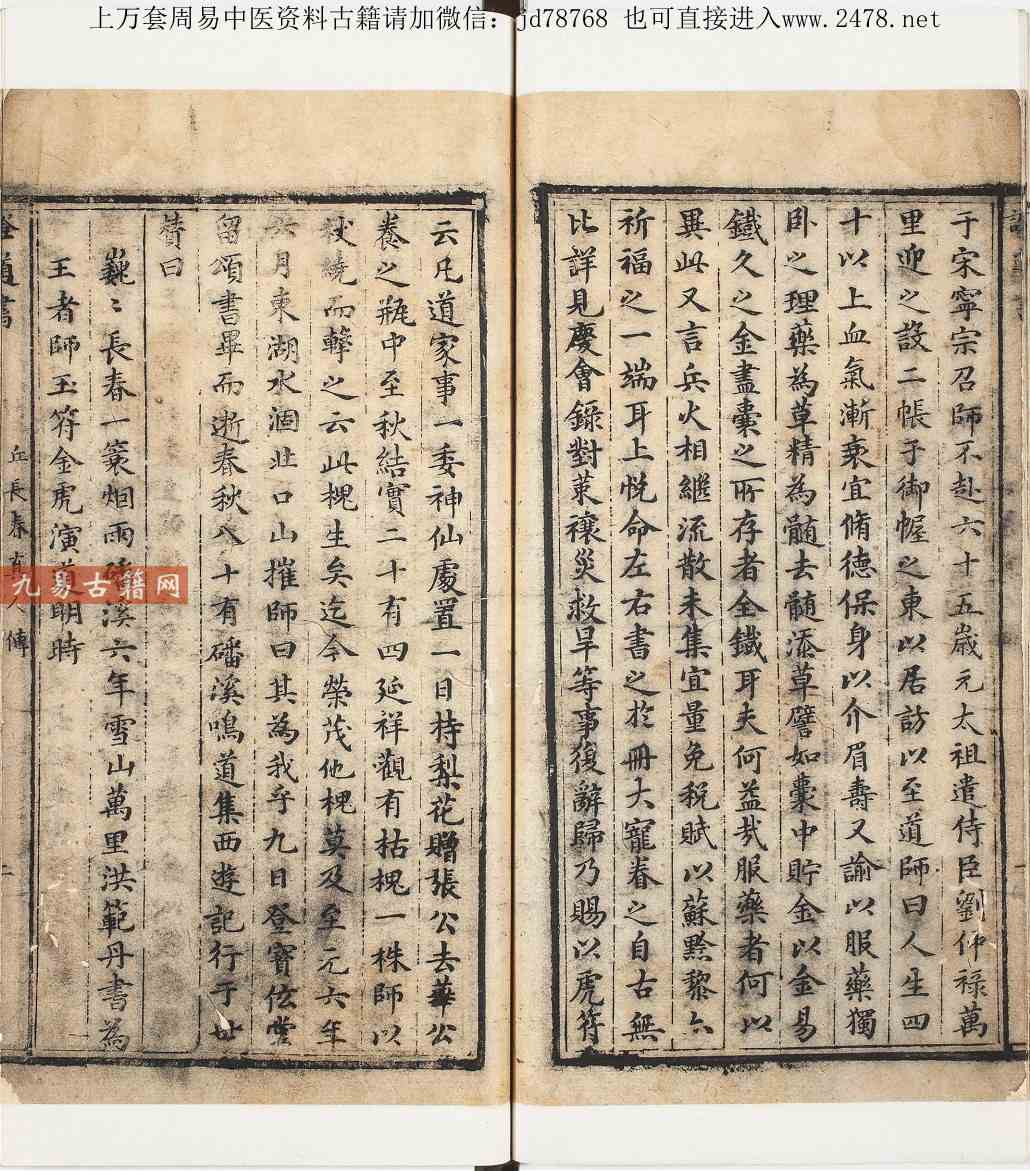 上万套周易中医资料古籍请加微信：jd78768 也可直接进入www.2478.net
于宋寧宗召師不赴六十五歲元太祖遣侍臣劉仲祿萬
里迎之設二帳于御幄之東以居訪以至道師曰人生四
十以上血氣漸衰宜脩德保身以介眉壽又諭以服藥獨
卧之理藥為草精為髓去髓添草譬如囊中貯金以金易
鐵久之金盡囊之所存者全鐵耳夫何益㦲服藥者何以
異此又言兵火相継流散未集宜量免税賦以蘇黔黎亦
祈福之一端耳上悅命左右書之於冊大寵眷之自古無
比詳見慶會錄對菓禳災救旱等事復辭歸乃賜以虎符
云凡道家事一委神仙處置一日持梨花贈張公去華公
養之瓶中至秋結實二十有四延祥觀有枯槐一株師以
杖繞而擊之云此槐生矣迄今榮茂他槐莫及至元六年
六月東湖水涸北口山摧師曰其為我乎九日登寶伭堂
留頌書畢而逝春秋八十有磻溪鳴道集西遊記行于世
賛曰
巍〻長春一簑烟雨磻溪六年雪山萬里洪範丹書為
王者師玉符金虎演道明時
丘長春真人傳
二
九易古籍网